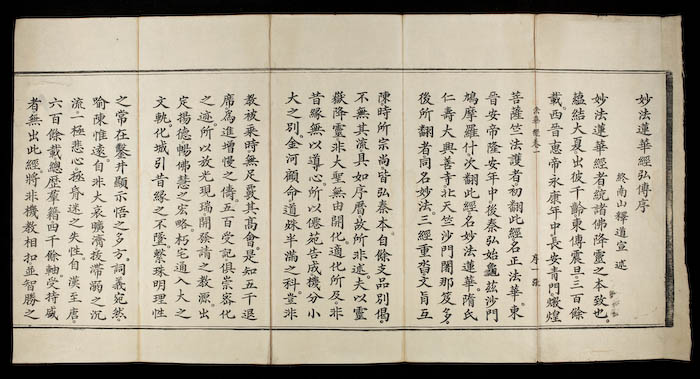 妙法蓮華經弘傳序
終南山釋道宣 述
妙法蓮華經者統諸佛降靈之本致也。
蘊結大夏出彼千齡東傳震旦三百餘
載。西晉惠帝永康年中長安青門燉煌
法華經卷一 序一 張
菩薩竺法護者初翻此經名正法華。東
晉安帝隆安年中後秦弘始龜茲沙門
鳩摩羅什次翻此經名妙法蓮華。隋氏
仁壽大興善寺北天竺沙門闍那笈多。
後所翻者同名妙法。三經重沓文旨互
陳時所宗尚皆弘秦本自餘支品別偈。
不無其流具如序曆故所非述。夫以靈
嶽降靈非大聖無由開化適化所及。非
昔緣無以導心。所以僊苑告成機分小
大之別。金河顧命道殊半滿之科。豈非
教被乘時無足覈其高會。是知五千退
席。為進增慢之儔。五百受記俱崇密化
之迹。所以放光現瑞開發請之教源。出
定揚德暢佛慧之宏略。朽宅通入大之
文軌。化城引昔緣之不墜。繫珠明理性
之常在。鑿井顯示悟之多方。詞義宛然。
喻陳惟遠。自非大哀曠濟。拔滯溺之沉
流。一極悲心。拯昏迷之失性。自漢至唐。
六百餘載。總歷羣籍。四千餘軸。受持盛
者。無出此經。將非機教相扣。並智勝之